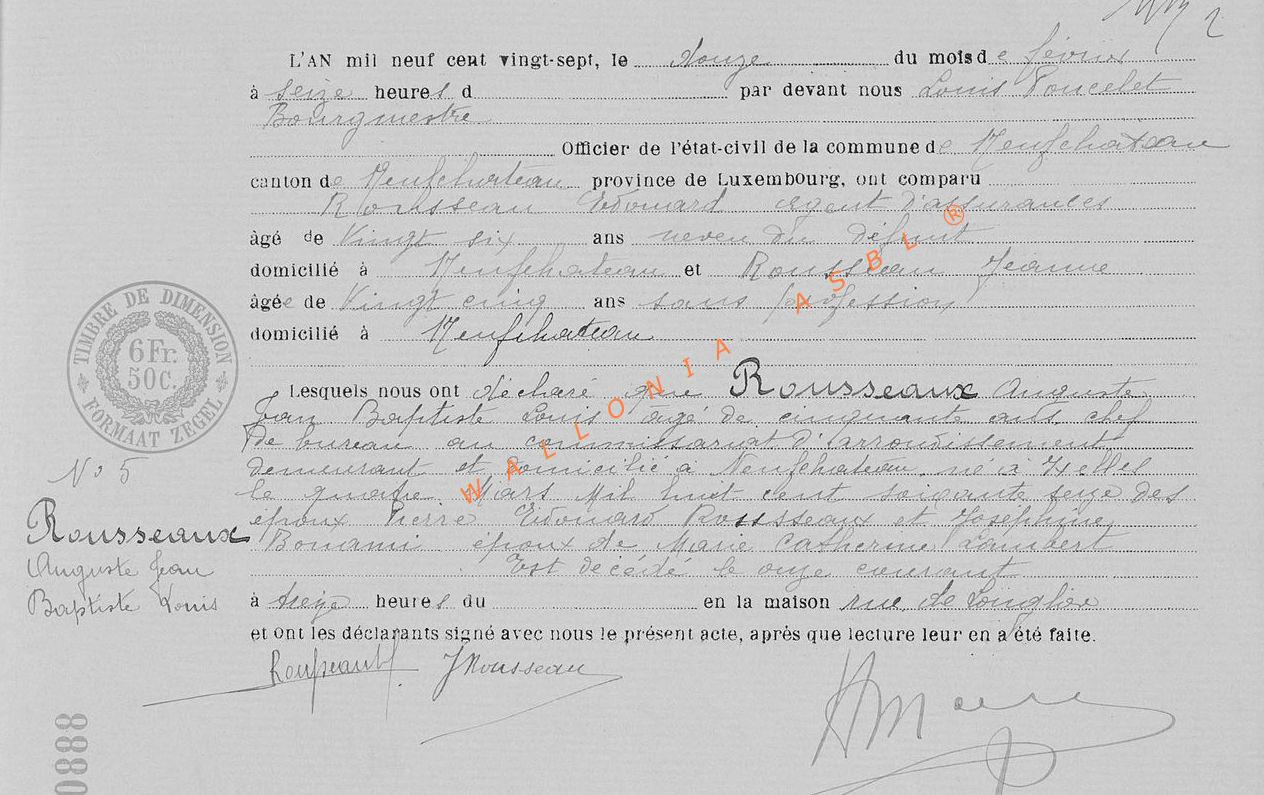 L'AN mil neuf cent vingt-sept, le douze du mois de février
à seize heures d par devant nous Louis Poncelet
Bourgmestre
Officier de l'état-civil de la commune de Neufchateau
canton de Neufchateau province de Luxembourg, ont comparu
Rousseau Edouard agent d'assurances
âgé de vingt six ans neveu du défunt
domicilié à Neufchateau et Rousseau Jeanne
âgée de vingt cinq ans sans profession
domicilié à Neufchateau
Lesquels nous ont déclaré que Rousseaux Auguste
Jean Baptiste Louis agé de cinquante ans chef
de bureau au commissariat d'arrondissement
demeurant et domicilié à Neufchateau né à Ixelles
le quatre Mars Mil huit cent soixante seize des
époux Pierre Edouard Rousseaux et Joséphine
Bonami époux de Marie Catherine Lambert
Est décédé le onze courant
à treize heures du en la maison rue de Longlier
et ont les déclarants signé avec nous le présent acte, après que lecture leur en a été faite.
JRousseau
TIMBRE DE DIMENSION
6 Fr.
50 C.
FORMAAT ZEGEL
No 5
Rousseaux
Auguste Jean
Baptiste Louis
0888
WALLONIA ASBL ®